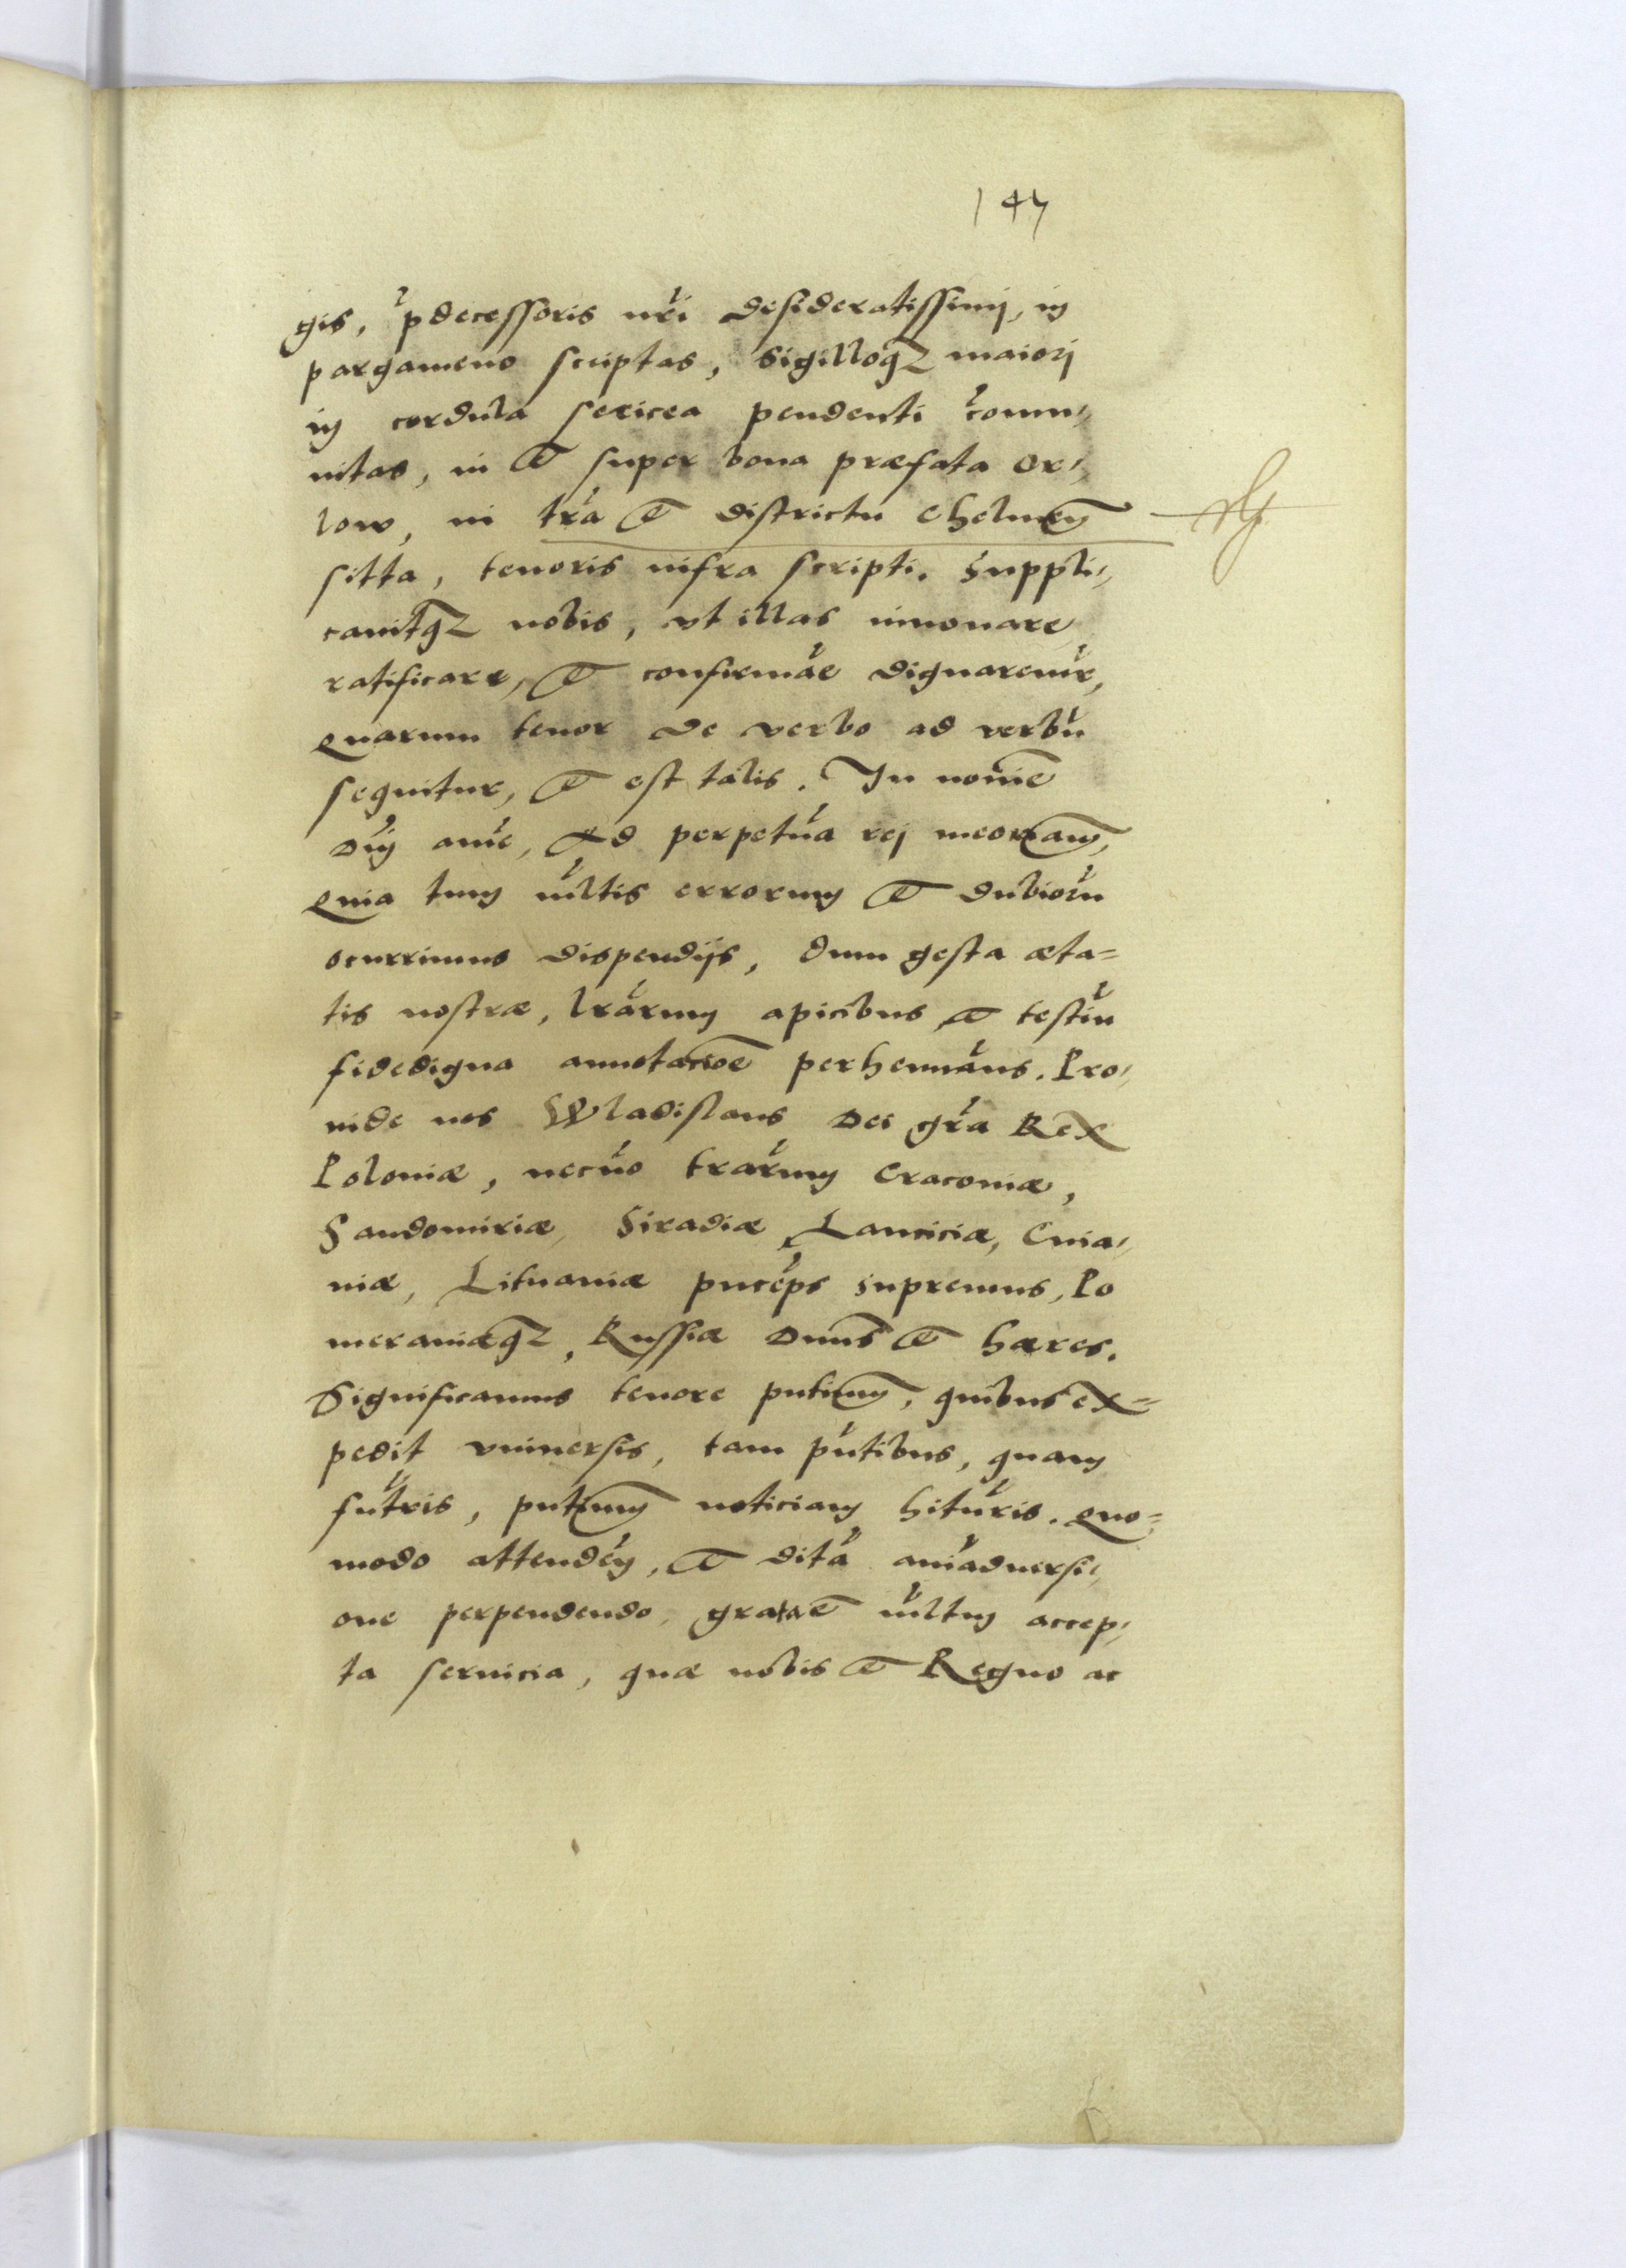 147
gis, pdecessoris nri desideratissimj, in
pargameno scriptas, Sigilloq3 maiorj
in cordula sericea pendenti com̃u,,
nitas, in et super bona præfata Or,,
low, in tra et districtu Chelmen̄
sitta, tenoris infra scripti. Suppli,,
cauitq3 nobis, vt illas innouare,
ratificare, et confirmãe dignaremr̃,
Quarum tenor de verbo ad verbũ
sequitur, et est talis. In noĩe
Dnĩ amẽ, Ad perpetuã rej meoriam,
Quia tum ml̃tis errorum et dubiorũ
ocurrimus dispendijs, dum gesta æta=
tis nostræ, lrãrum apicibus et testiũ
fidedigna annotatioē perhennãus. Pro,,
inde nos Wladislaus Dei grã Rex
Poloniæ, necnõ trãrum Craconiæ,
Sandomiriæ, Siradiæ, Lanciciæ, Cuia,,
uiæ, Lituaniæ princẽps supremus, Po
meraniæq3, Russiæ Dnūs et hæres.
Significamus tenore pn̄tium, quibus ex=
pedit vniuersis, tam pñtibus, quam
futr̃is, pn̄tium noticiam hitũris. Quo=
modo attendeñ, et ditã aniãduersi,,
one perpendendo, gratae ml̃tum accep,,
ta seruicia, quæ nobis et Regno ac